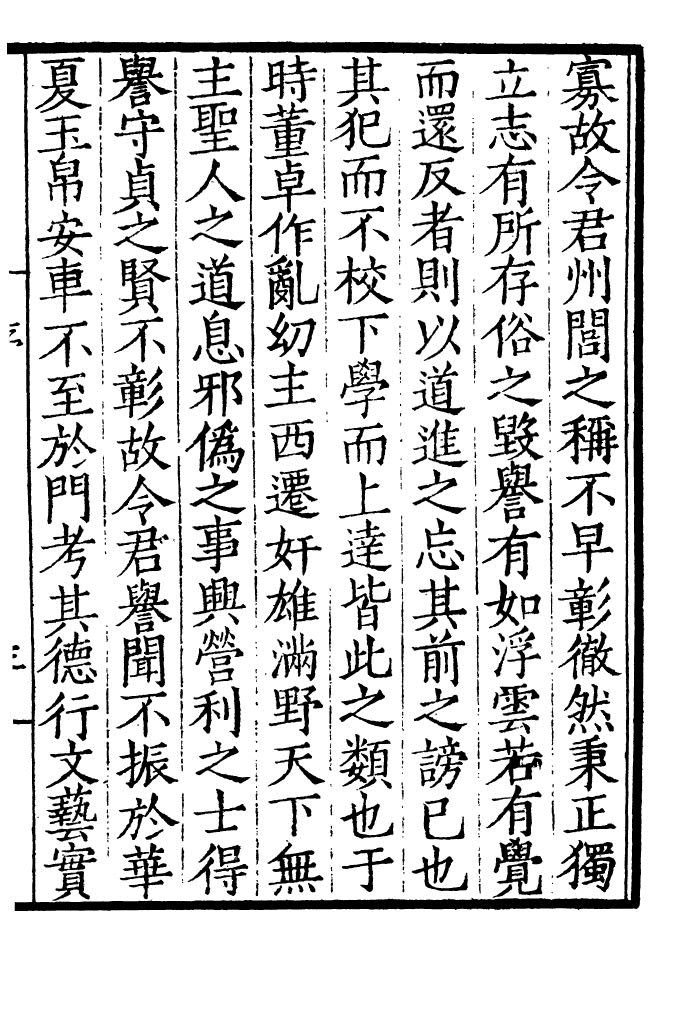 寡故令君州閭之稱不早彰徹然秉正獨
立志有所存俗之毀譽有如浮雲若有覺
而還反者則以道進之忘其前之謗已也
其犯而不校下學而上達皆此之類也于
時董卓作亂幼主西遷奸雄滿野天下無
主聖人之道息邪僞之事興營利之士得
譽守貞之賢不彰故令君譽聞不振於華
夏玉帛安車不至於門考其德行文藝實